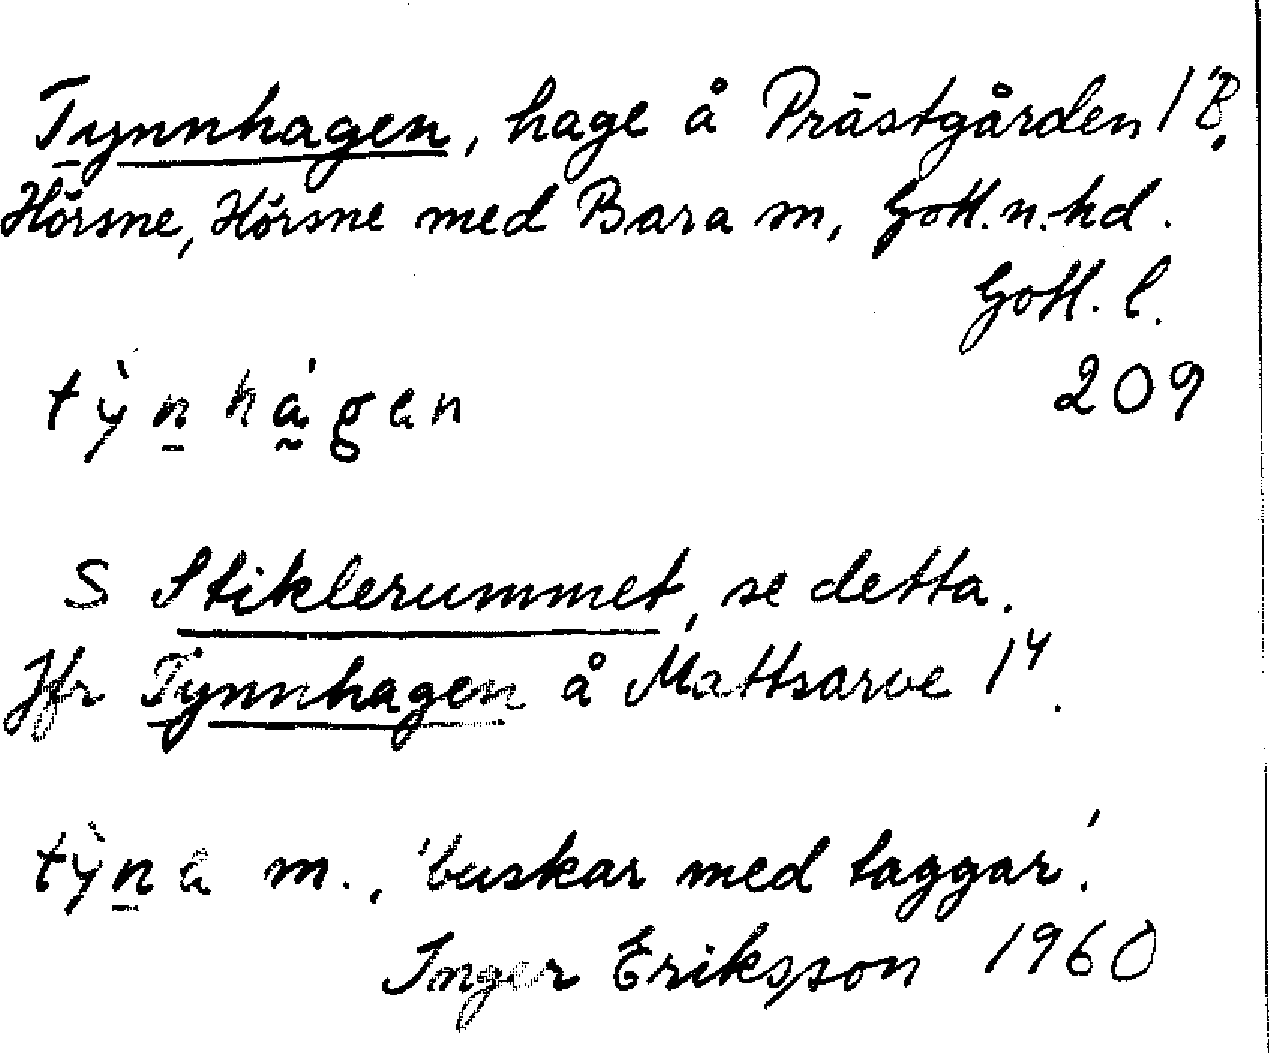 Tynnhagen, hage å Prästgården 1B,
Hörsne, Hörsne med Bara sn, Gotl. n. hd.
Gotl. l.
209
tỳn hágen
S Stiklerummet, se detta.
Jfr Tynnhagen å Mattsarve 1⁴.
tỳna m., 'buskar med taggar'.
Inger Eriksson 1960